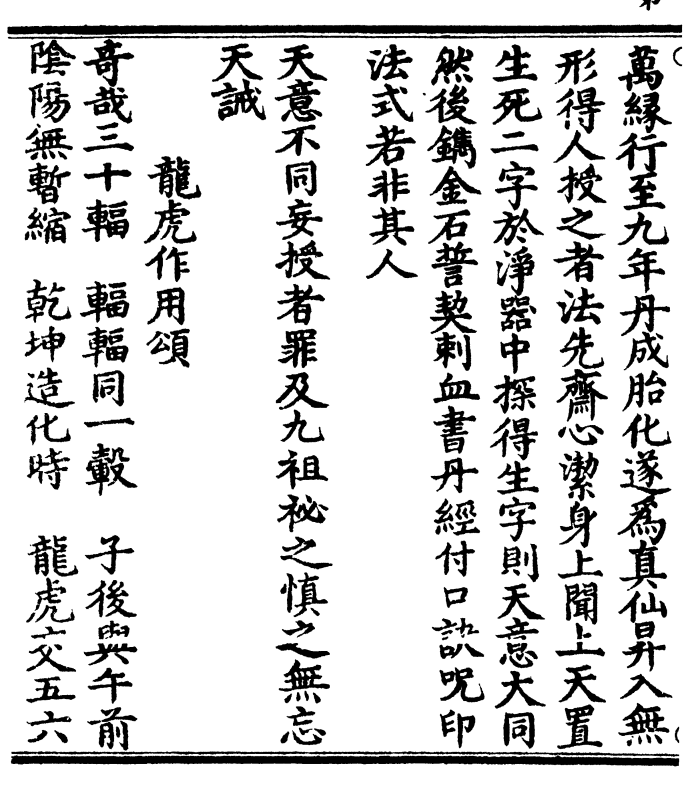 萬緣行至九年丹成胎化遂為真仙昇入無
形得人授之者法先齋心潔身上聞上天置
生死二字於淨器中探得生字則天意大同
然後鐫金石誓契刺血書丹經付口訣呪印
法式若非其人
天意不同妄授者罪及九祖祕之慎之無忘
天誡
龍虎作用頌
奇哉三十輻　輻輻同一轂　子後與午前
陰陽無暫縮　乾坤造化時　龍虎交五六